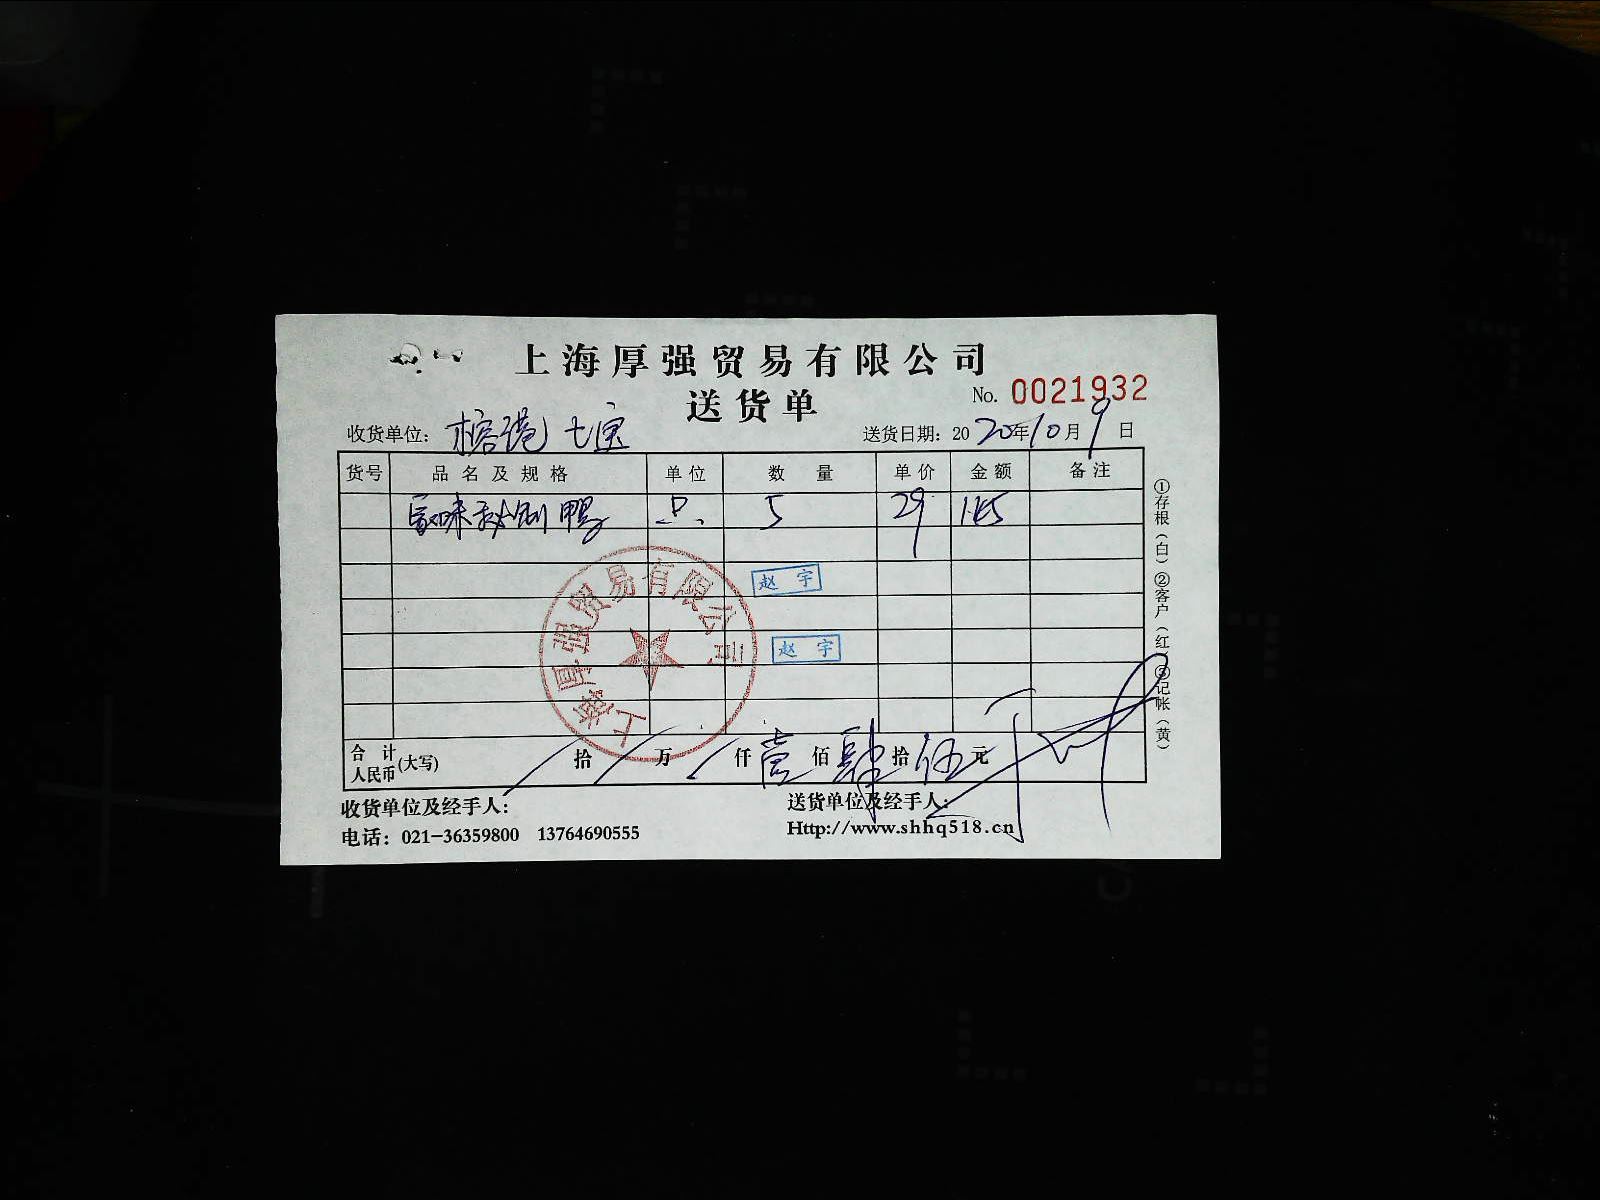 上海厚强贸易有限公司
送货单
No. 0021932
收货单位: 榕港七宝
送货日期: 2020年10月9日
货号 品名及规格 单位 数量 单价 金额 备注
鸭 只 5 29 145
赵宇
赵宇
上海厚强贸易有限公司
合计人民币(大写) 拾 万 仟 壹佰 肆拾 伍元
收货单位及经手人:
送货单位及经手人:
电话: 021-36359800 13764690555
Http://www.shhq518.cn
①存根(白)②客户(红)③记帐(黄)